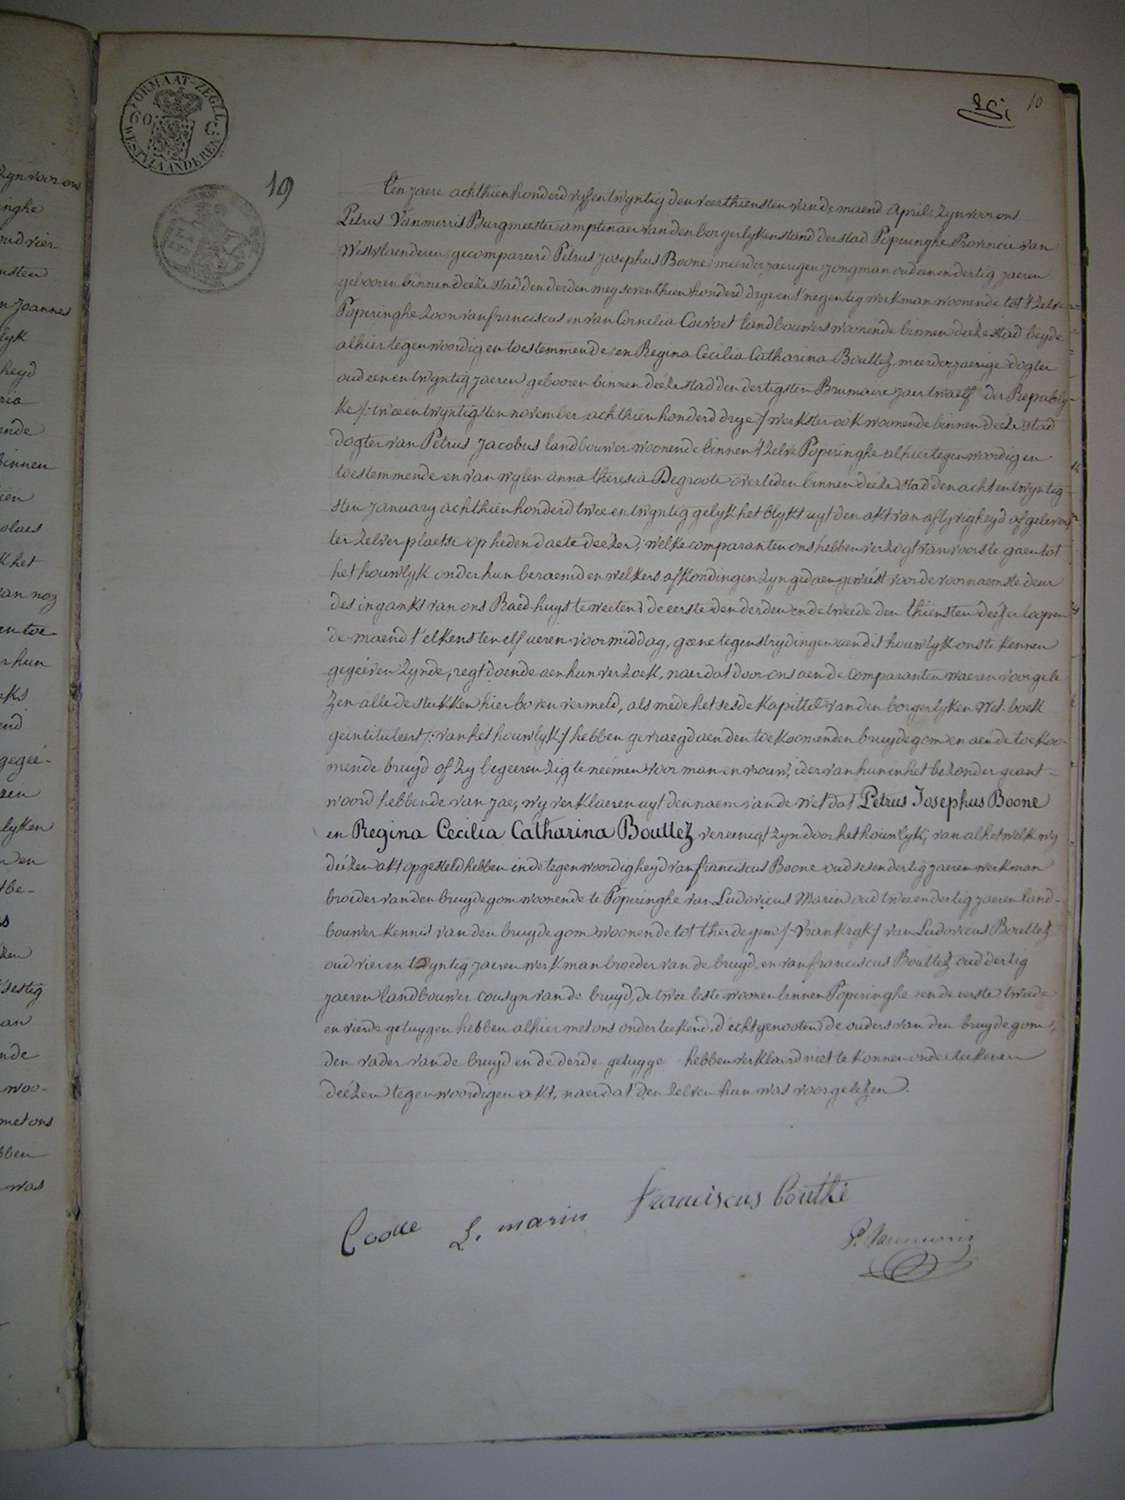 FORMAAT-ZEGEL
50 C
WESTVLAANDEREN
10
19
Ten jaere achthien honderd vyf en twyntig den veerthiensten van de maend April, zyn voor ons
Petrus Vanmerris Burgmeester amptenaer van den borgerlyken stand der stad Poperinghe Provincie van
Westvlaenderen, gecompareerd Petrus Josephus Boone meerderjaerigen jongman oud een en dertig jaeren
gebooren binnen deeze stad den derden mey seventhien honderd drye en t'negentig werkman woonende tot t'zelve
Poperinghe Zoon van franciscus en van Cornelia Coevoet landbouwers woonende binnen deeze stad beyde
alhier tegenwoordig en toestemmende, en Regina Cecilia Catharina Bouttez, meerderjaerige dogter
oud een en twyntig jaeren gebooren binnen deeze stad den dertigsten Brumaire jaer twaelf der Republy-
ke /: twee en twyntigsten november achthien honderd drye / werkster ook woonende binnen deeze stad
dogter van Petrus Jacobus landbouwer woonende binnen t'zelve Poperinghe alhier tegenwoordig en
toestemmende en van wylen anna theresia Degroote overleden binnen deeze stad den acht en twyntig-
sten January achthien honderd twee en twyntig gelyk het blykt uyt den akt van aflyvigheyd afgelevert
ter zelver plaetse op heden daete deezer; welke comparanten ons hebben verzogt van voors te gaen tot
het houwlyk onder hun beraemd en welkers afkondingen zyn gedaen geweést voor de voornaemste deur
des ingankt van ons Raed-huys te weeten: de eerste den derden en de tweede den thiensten deezer loopen-
de maend t'elkens ten elf ueren voormiddag, geene tegenstrydingen aen dit houwlyk ons te kennen
gegeéven zynde, regt doende aen hun verzoek, naer dat door ons aen de comparanten waeren voorgele
zen alle de stukken hier boven vermeld, als mede het sesde kapittel van den borgerlyken Wet-boek
geintituleert /: van het houwlyk / hebben gevraegd aen den toekoomenden bruydegom en aen de toekoo-
mende bruyd of zy begeeren zig te neémen voor man en vrouw, ider van hun in het bezonder geant-
woord hebbende van jae, wy verklaeren uyt den naem van de wet dat Petrus Josephus Boone
en Regina Cecilia Catharina Bouttez vereenigt zyn door het houwlyk, van al het welk wy
deézen akt opgesteld hebben in de tegenwoordigheyd van franciscus Boone oud ses en dertig jaeren werkman
broeder van den bruydegom woonende te Poperinghe van Ludovicus Marin oud twee en dertig jaeren land-
bouwer kennis van den bruydegom woonende tot therdegem /: Vrankryk / van Ludovicus Bouttez
oud vier en twyntig jaeren werkman broeder van de bruyd, en van franciscus Bouttez oud dertig
jaeren landbouwer cousyn van de bruyd, de twee leste woonen binnen Poperinghe en de eerste tweede
en vierde getuygen hebben alhier met ons onderteekend, d'echtgenooten, de ouders van den bruydegom,
den vader van de bruyd en de derde getuyge hebben verklaerd niet te konnen onderteekenen
deézen tegenwoordigen akt, naer dat den zelven hun was voorgelezen.
L. marin
franciscus bouthé